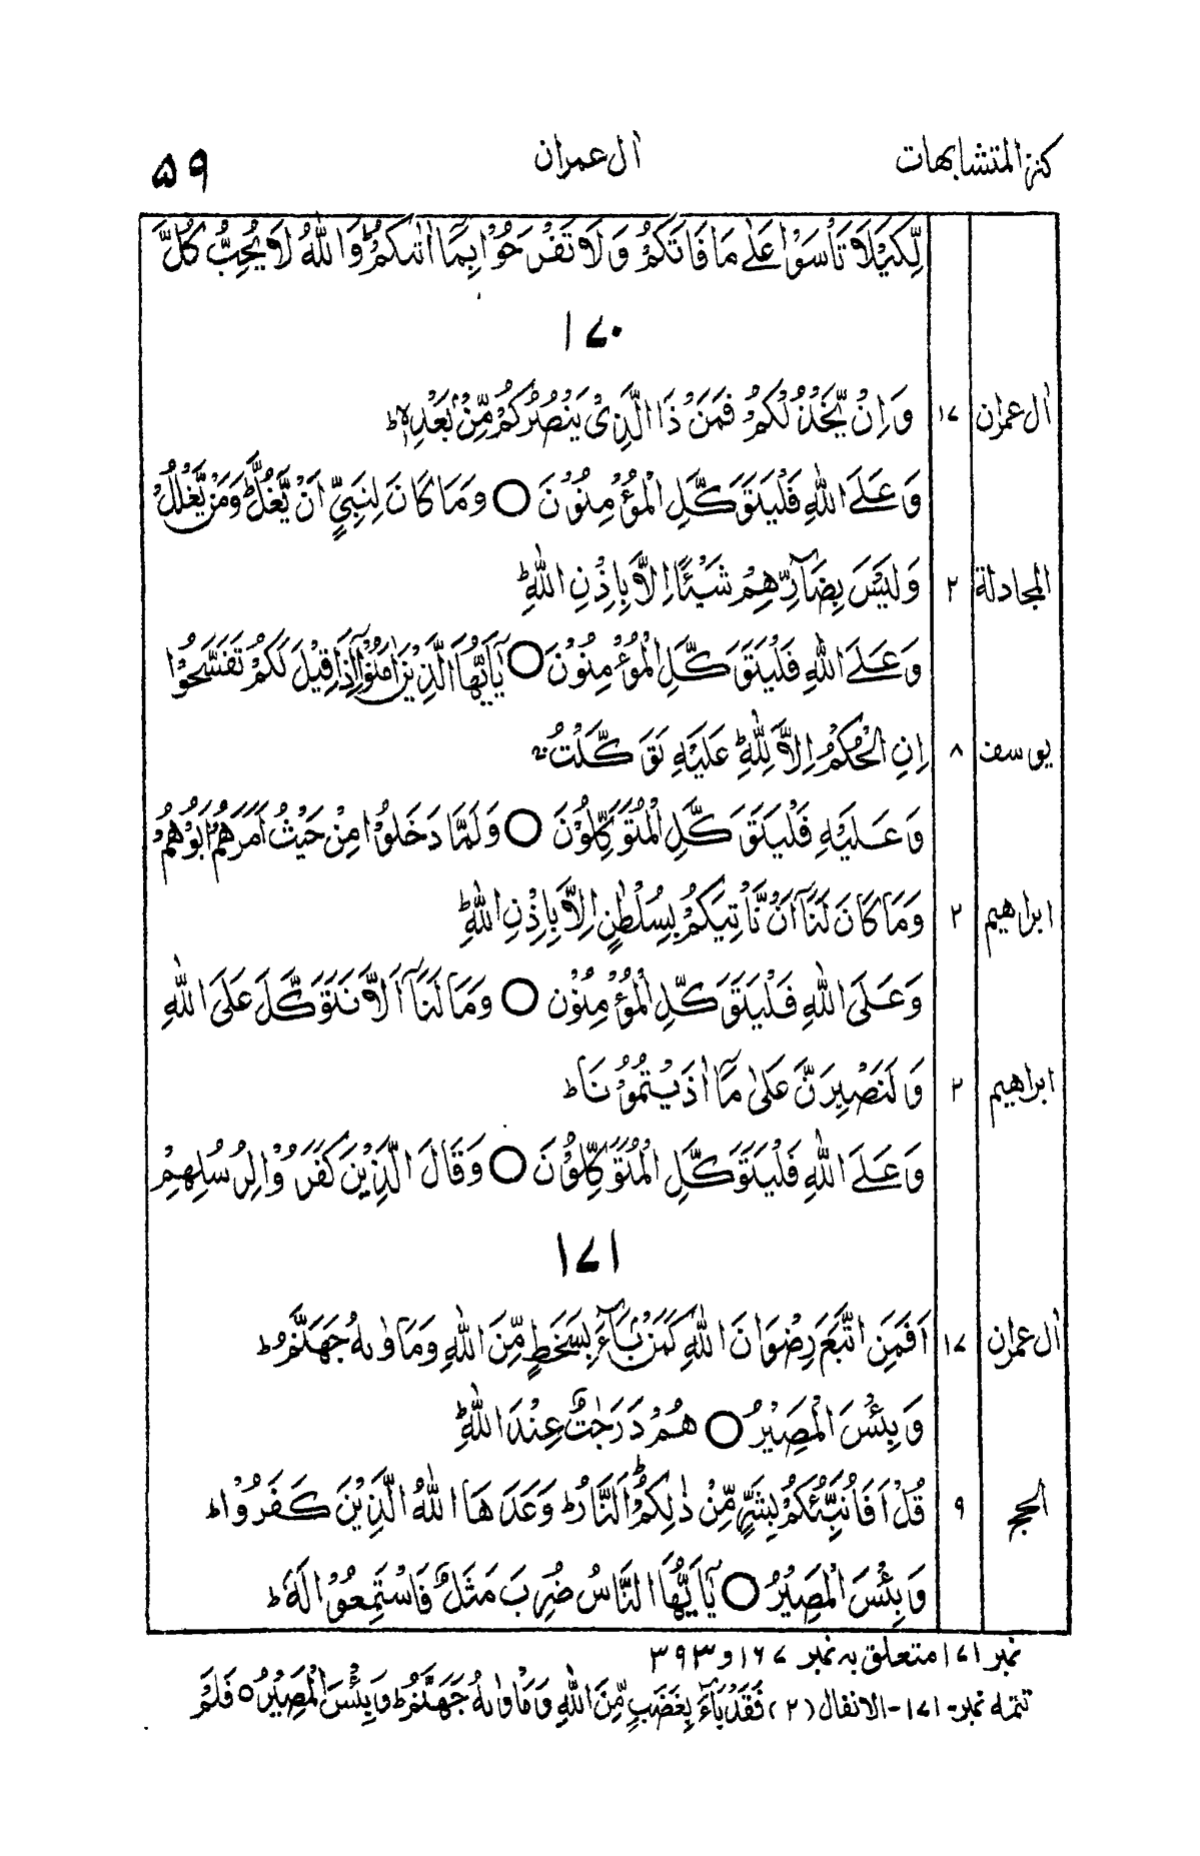 كنز المتشابهات اٰل عمران ۵۹
لِّكَيْلَا تَأْسَوْا عَلٰى مَا فَاتَكُمْ وَلَا تَفْرَحُوْا بِمَآ اٰتٰىكُمْ ؕ وَاللّٰهُ لَا يُحِبُّ كُلَّ
۱۷۰
اٰل عمران ۱۷ وَاِنْ يَّخْذُلْكُمْ فَمَنْ ذَا الَّذِىْ يَنْصُرُكُمْ مِّنْۢ بَعْدِهٖ ؕ
وَعَلَى اللّٰهِ فَلْيَتَوَكَّلِ الْمُؤْمِنُوْنَ ○ وَمَا كَانَ لِنَبِيٍّ اَنْ يَّغُلَّ ؕ وَمَنْ يَّغْلُلْ
المجادلة ۲ وَلَيْسَ بِضَآرِّهِمْ شَيْئًا اِلَّا بِاِذْنِ اللّٰهِ ؕ
وَعَلَى اللّٰهِ فَلْيَتَوَكَّلِ الْمُؤْمِنُوْنَ ○ يٰٓاَيُّهَا الَّذِيْنَ اٰمَنُوْٓا اِذَا قِيْلَ لَكُمْ تَفَسَّحُوْا
يوسف ۸ اِنِ الْحُكْمُ اِلَّا لِلّٰهِ ؕ عَلَيْهِ تَوَكَّلْتُ ۚ
وَعَلَيْهِ فَلْيَتَوَكَّلِ الْمُتَوَكِّلُوْنَ ○ وَلَمَّا دَخَلُوْا مِنْ حَيْثُ اَمَرَهُمْ اَبُوْهُمْ
ابراهيم ۲ وَمَا كَانَ لَنَآ اَنْ نَّاْتِيَكُمْ بِسُلْطٰنٍ اِلَّا بِاِذْنِ اللّٰهِ ؕ
وَعَلَى اللّٰهِ فَلْيَتَوَكَّلِ الْمُؤْمِنُوْنَ ○ وَمَا لَنَآ اَلَّا نَتَوَكَّلَ عَلَى اللّٰهِ
ابراهيم ۲ وَلَنَصْبِرَنَّ عَلٰى مَآ اٰذَيْتُمُوْنَا ؕ
وَعَلَى اللّٰهِ فَلْيَتَوَكَّلِ الْمُتَوَكِّلُوْنَ ○ وَقَالَ الَّذِيْنَ كَفَرُوْا لِرُسُلِهِمْ
۱۷۱
اٰل عمران ۱۷ اَفَمَنِ اتَّبَعَ رِضْوَانَ اللّٰهِ كَمَنْۢ بَآءَ بِسَخَطٍ مِّنَ اللّٰهِ وَمَاْوٰىهُ جَهَنَّمُ ؕ
وَبِئْسَ الْمَصِيْرُ ○ هُمْ دَرَجٰتٌ عِنْدَ اللّٰهِ ؕ
الحج ۹ قُلْ اَفَاُنَبِّئُكُمْ بِشَرٍّ مِّنْ ذٰلِكُمْ ؕ اَلنَّارُ ؕ وَعَدَهَا اللّٰهُ الَّذِيْنَ كَفَرُوْا ؕ
وَبِئْسَ الْمَصِيْرُ ○ يٰٓاَيُّهَا النَّاسُ ضُرِبَ مَثَلٌ فَاسْتَمِعُوْا لَهٗ ؕ
نمبر ۱۷۱ متعلق به نمبر ۱۶۷ و ۳۹۳
تتمه نمبر-۱۷۱-الانفال (۲) فَقَدْ بَآءَ بِغَضَبٍ مِّنَ اللّٰهِ وَمَاْوٰىهُ جَهَنَّمُ ؕ وَبِئْسَ الْمَصِيْرُ ○ فَلَمْ